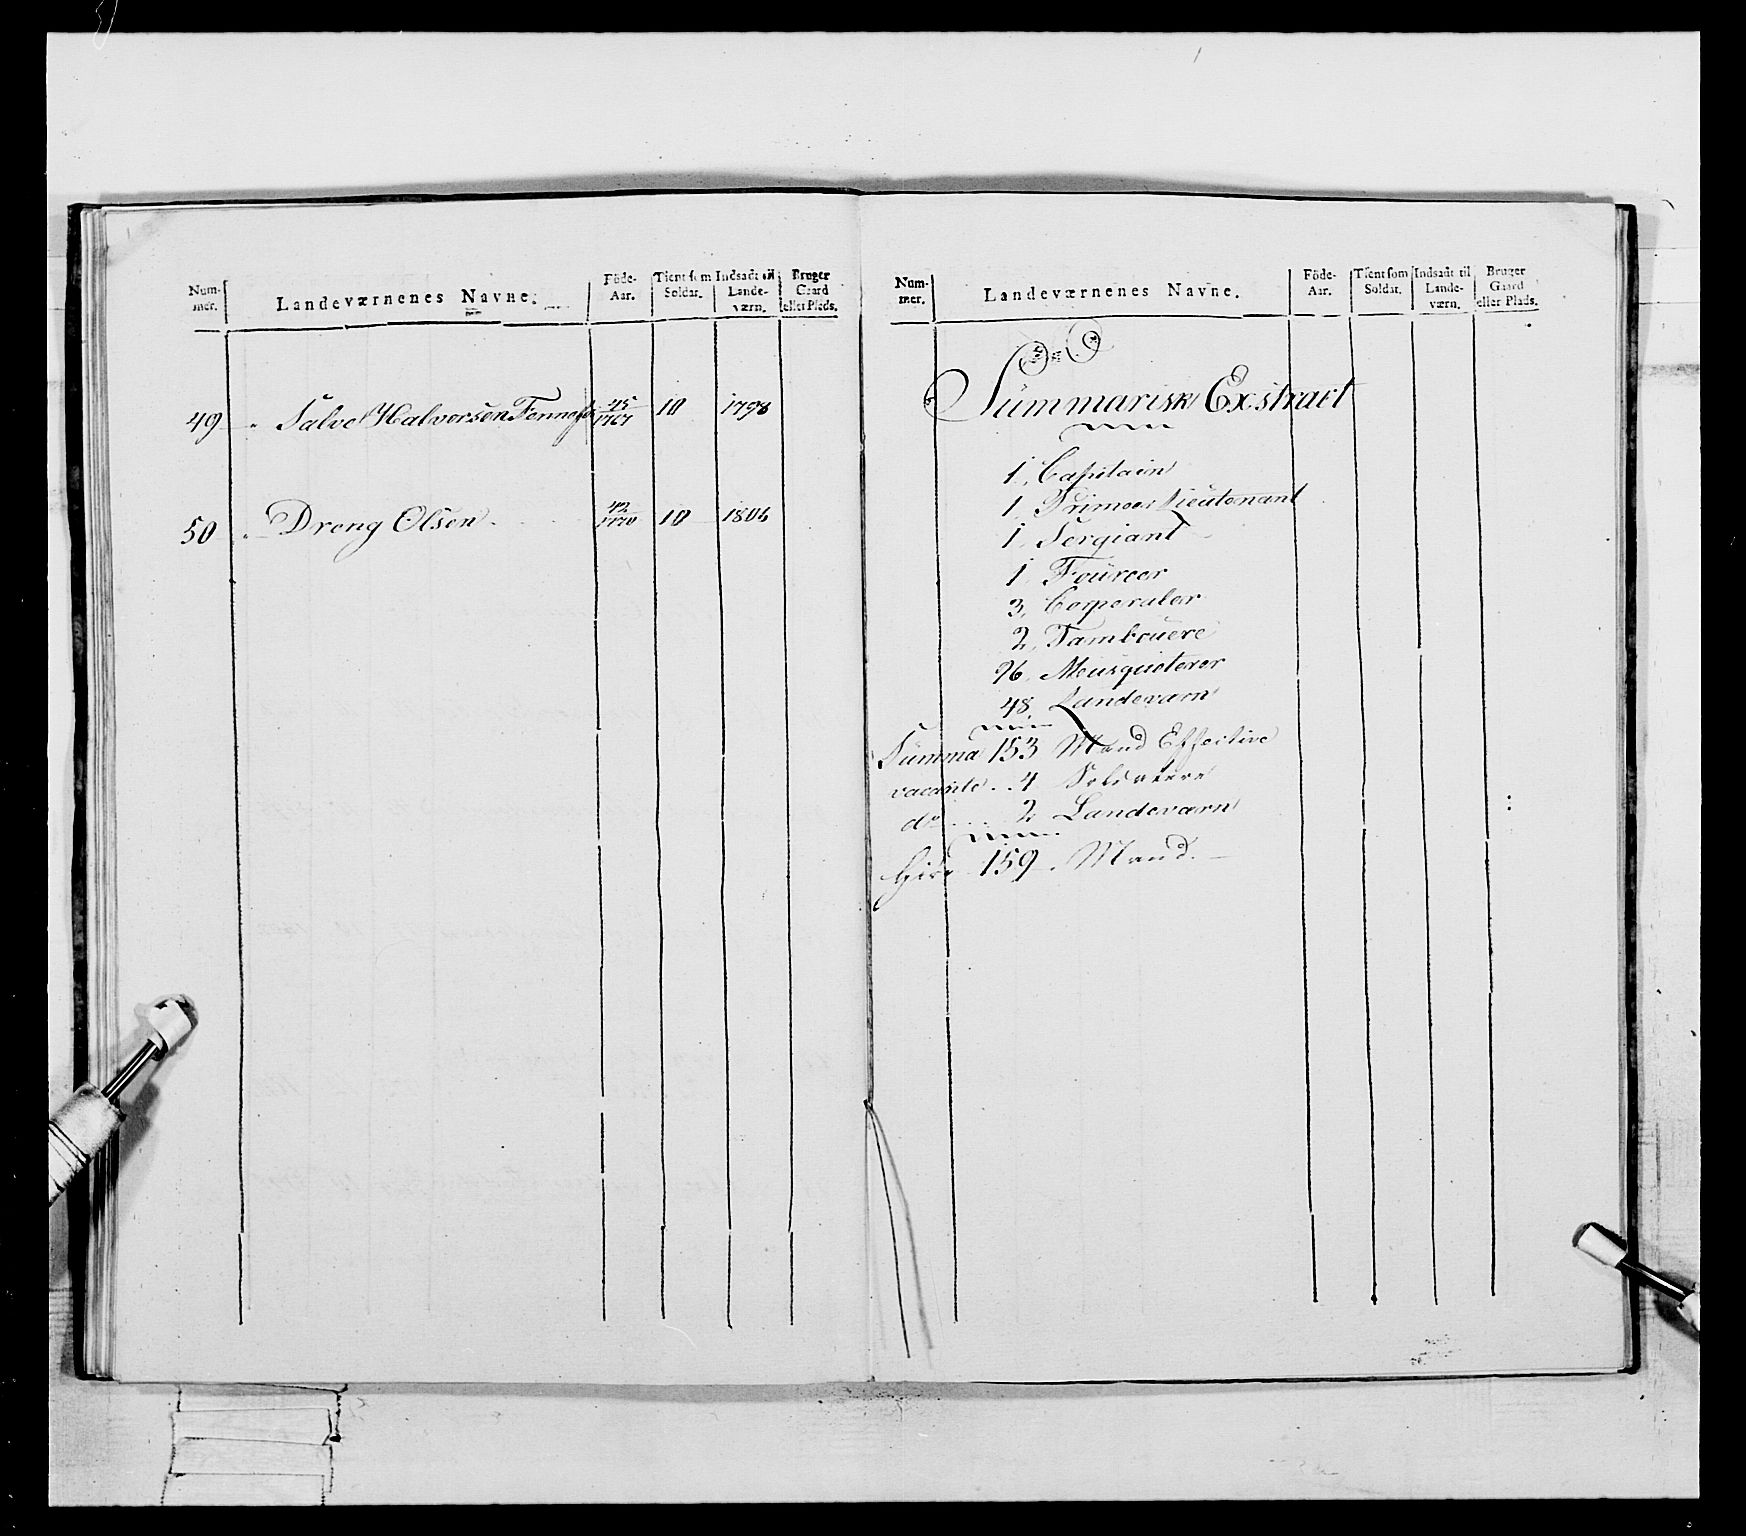 Num-
mer.
Landeværnenes Navne.
Föde-
Aar.
Tient som
Soldat.
Indsadt til
Lande-
værn.
Bruger
Gaard
eller Plads.
49 Salve Halvorsen 45/1767 10 1798
50 Dreng Olsen 42/1770 10 1806
Num-
mer.
Landeværnenes Navne.
Föde-
Aar.
Tient som
Soldat.
Indsadt til
Lande-
værn.
Bruger
Gaard
eller Plads.
Summarisk Exstract
1, Capitain
1, Primier Lieutenant
1, Sergiant
1, Foureer
3, Corporaler
2, Tambouere
96, Meusqueterer
48, Landeværn
Summa 153 Mand Effective
vacante .. 4 Soldatere
do .... 2 Landeværn
159 Mand.